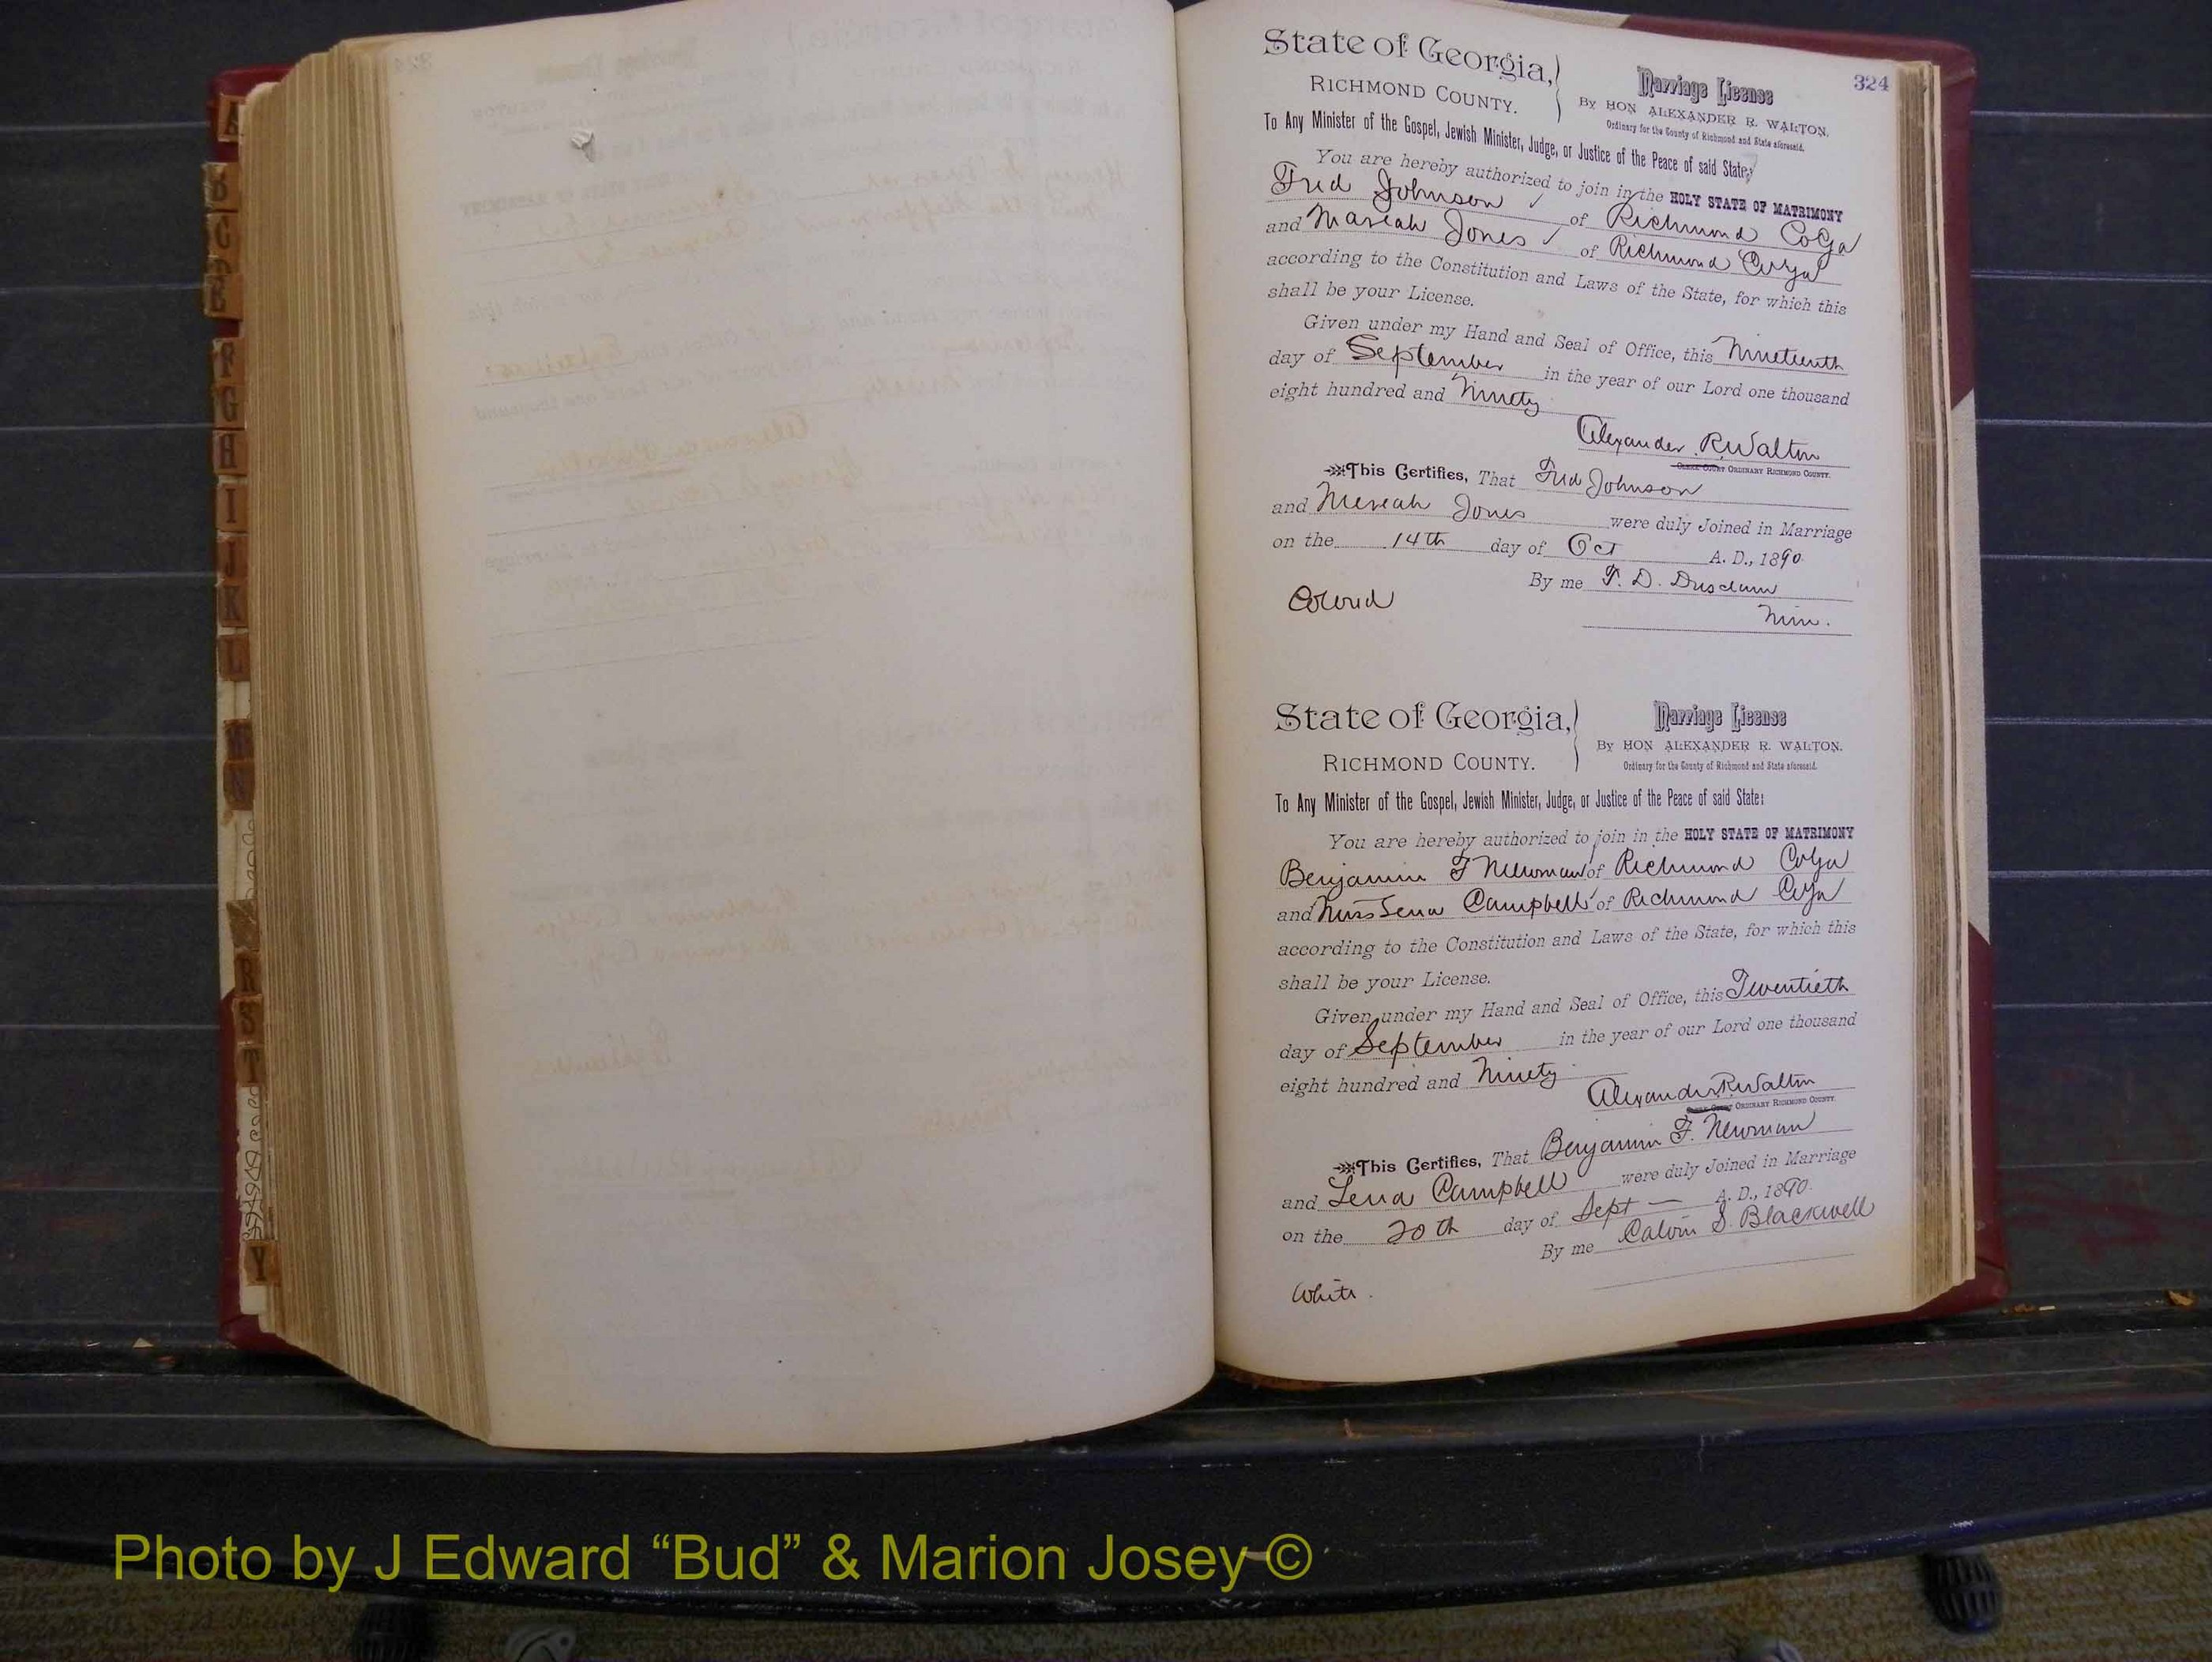 324
State of Georgia,
RICHMOND COUNTY.
Marriage License
By HON ALEXANDER R. WALTON,
Ordinary for the County of Richmond and State aforesaid.
To Any Minister of the Gospel, Jewish Minister, Judge, or Justice of the Peace of said State:
You are hereby authorized to join in the HOLY STATE OF MATRIMONY
Fred Johnson of Richmond Co Ga
and Mareah Jones of Richmond Co Ga
according to the Constitution and Laws of the State, for which this
shall be your License.
Given under my Hand and Seal of Office, this Nineteenth
day of September in the year of our Lord one thousand
eight hundred and Ninety
Alexander R Walton
CLERK COURT ORDINARY RICHMOND COUNTY.
This Certifies, That Fred Johnson
and Mereah Jones were duly Joined in Marriage
on the 14th day of Oct A. D., 1890.
By me T. D.
Colored
Min.
State of Georgia,
RICHMOND COUNTY.
Marriage License
By HON ALEXANDER R. WALTON.
Ordinary for the County of Richmond and State aforesaid.
To Any Minister of the Gospel, Jewish Minister, Judge, or Justice of the Peace of said State:
You are hereby authorized to join in the HOLY STATE OF MATRIMONY
Benjamin F Newman of Richmond Co Ga
and Miss Lena Campbell of Richmond Co Ga
according to the Constitution and Laws of the State, for which this
shall be your License.
Given under my Hand and Seal of Office, this Twentieth
day of September in the year of our Lord one thousand
eight hundred and Ninety
Alexander R Walton
CLERK COURT ORDINARY RICHMOND COUNTY.
This Certifies, That Benjamin F. Newman
and Lena Campbell were duly Joined in Marriage
on the 20th day of Sept — A. D., 1890.
By me Calvin S. Blackwell
White.
A
B
C
D
E
F
G
H
I
J
K
L
M
N
R
S
T
Y
Photo by J Edward “Bud” & Marion Josey ©